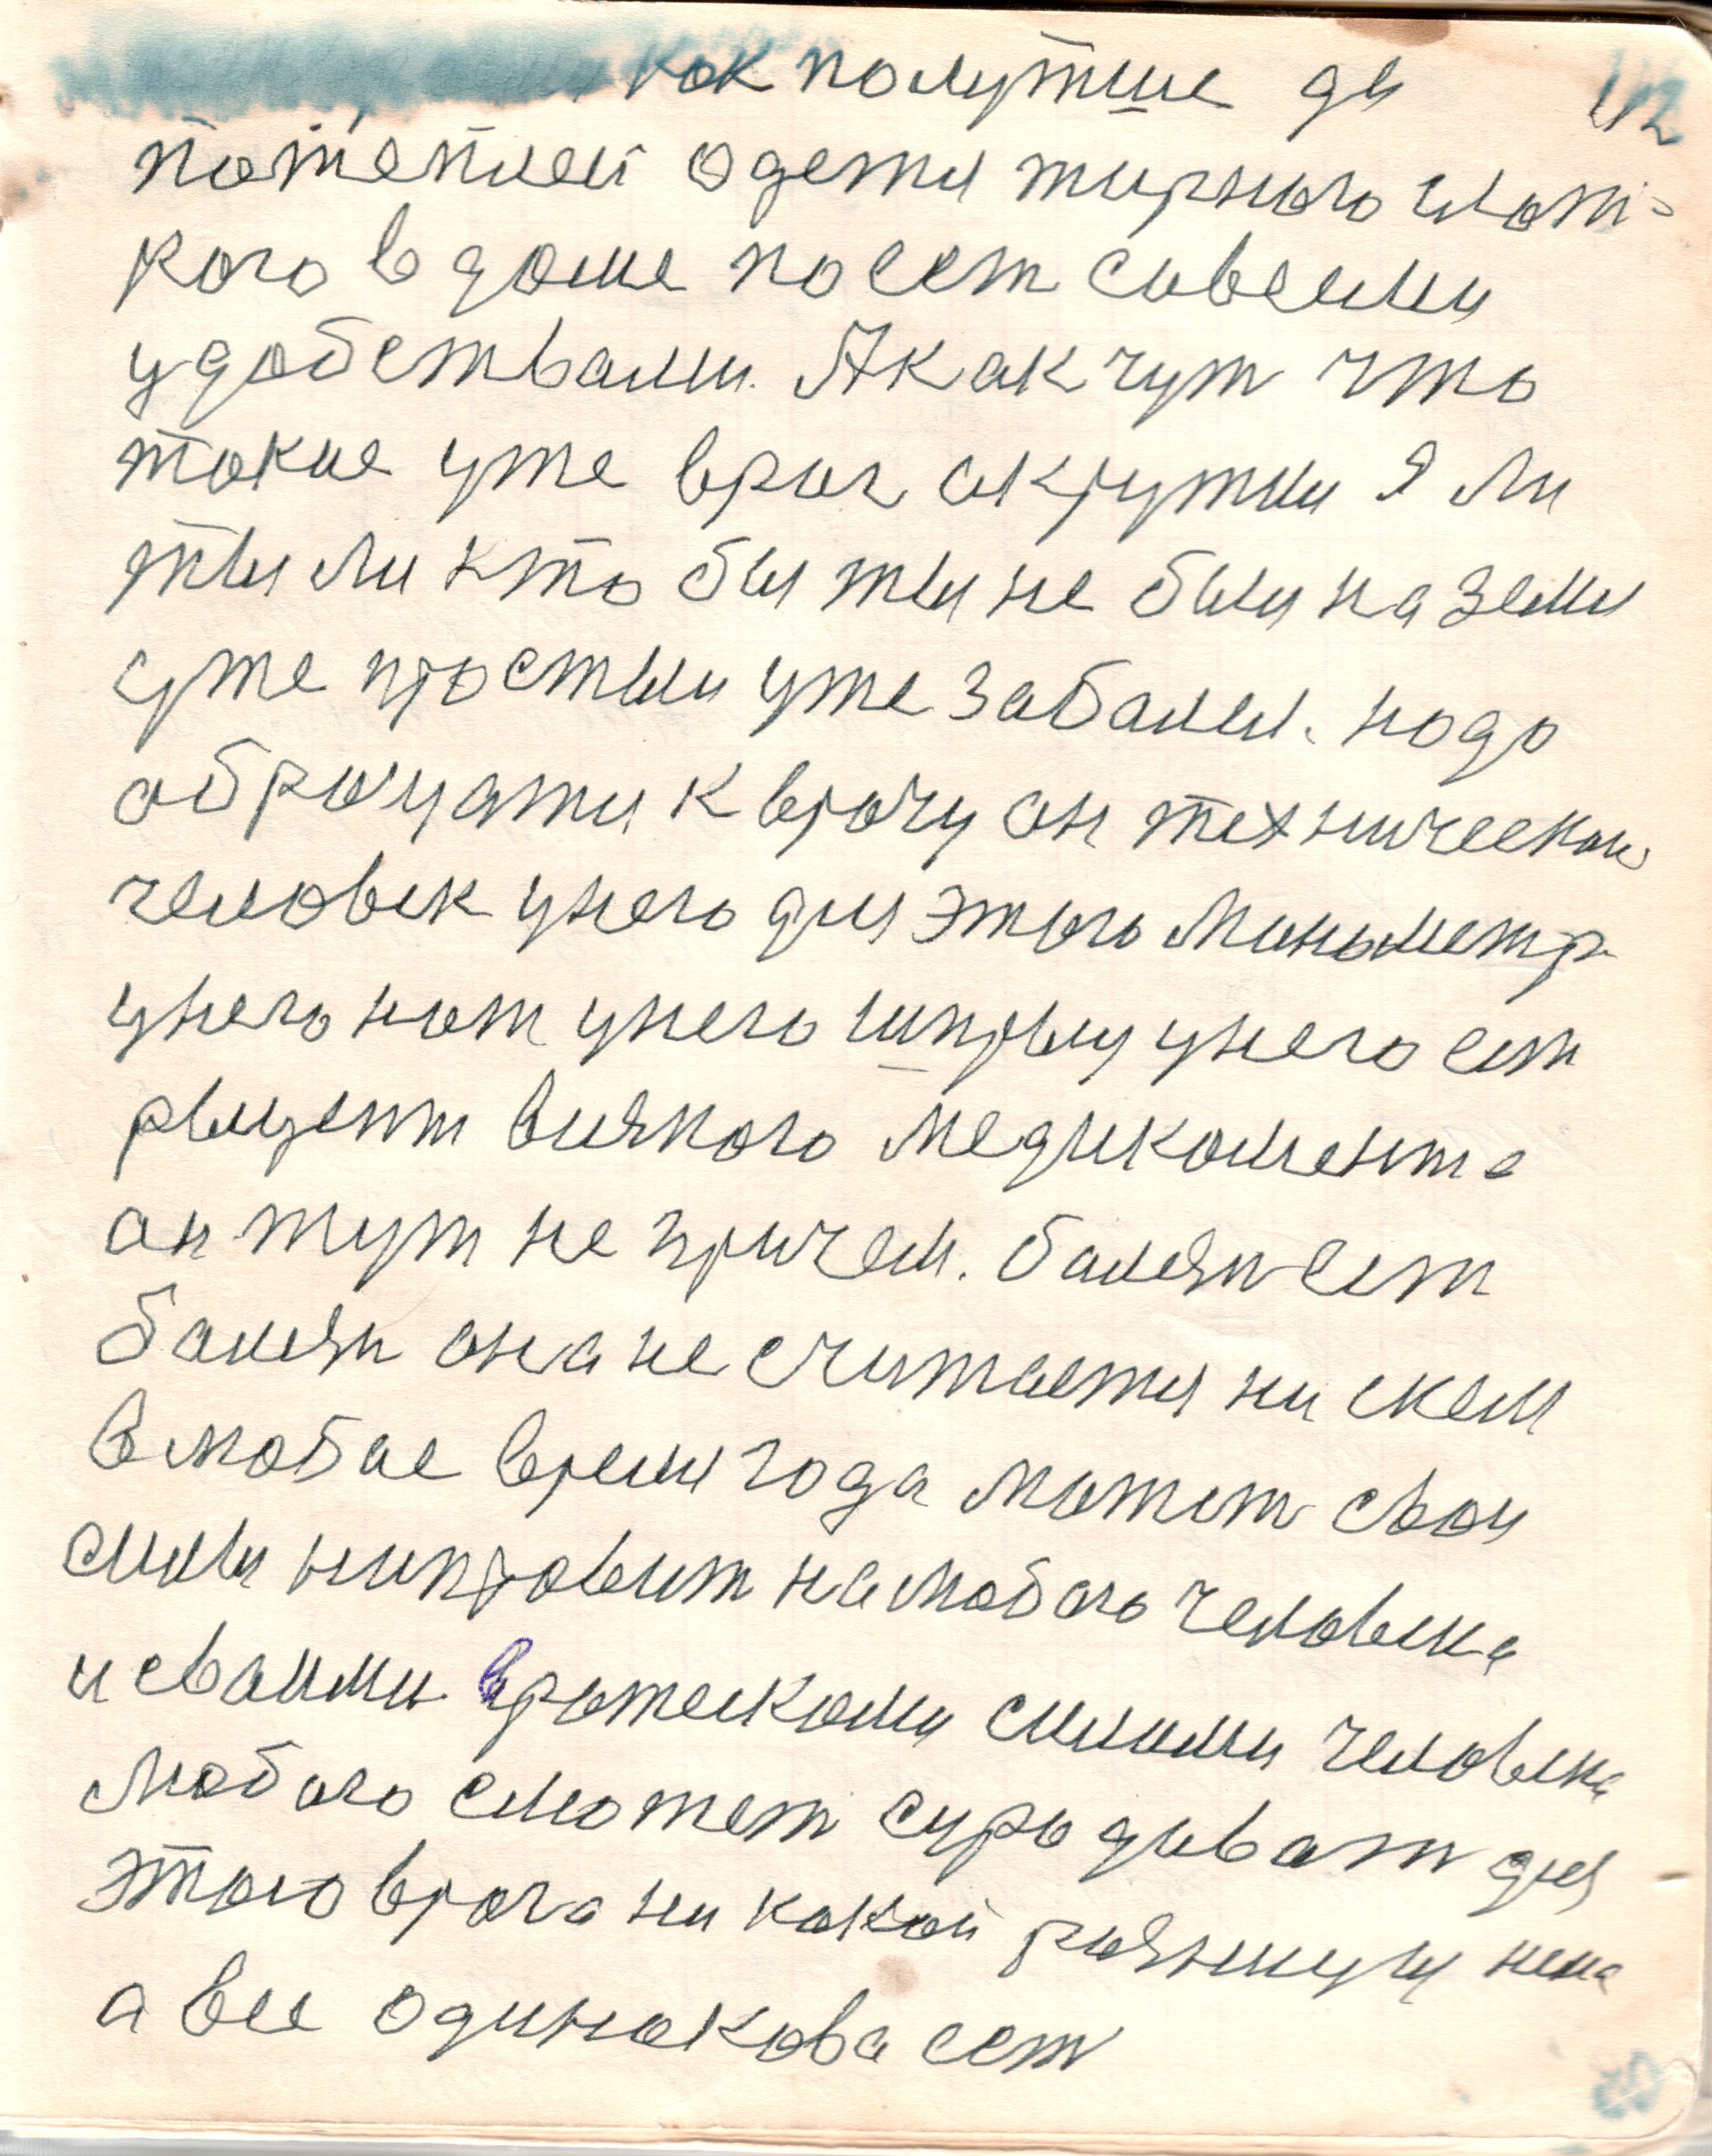 как получше да 42
потеплей одетя жирного слат-
кого в доме посет совсеми
удобствами. А как чут что
такие уже враг окружил Я ли
ты ли кто бы ты не был на земли
уже простыл уже забалел. надо
обращатя к врачу он технический
человек у него для этого
у него нож у него шпрыц у него ест
рыцепт всякого медикомента
он тут не причем. балезн ест
балезн она не считаетя ни скем
в любое время года может свои
силы направит на любого человека
и сваими вражескоми силами человека
любого сможет суродават для
этого врага ни какой разницы нена
а все одинокова ест